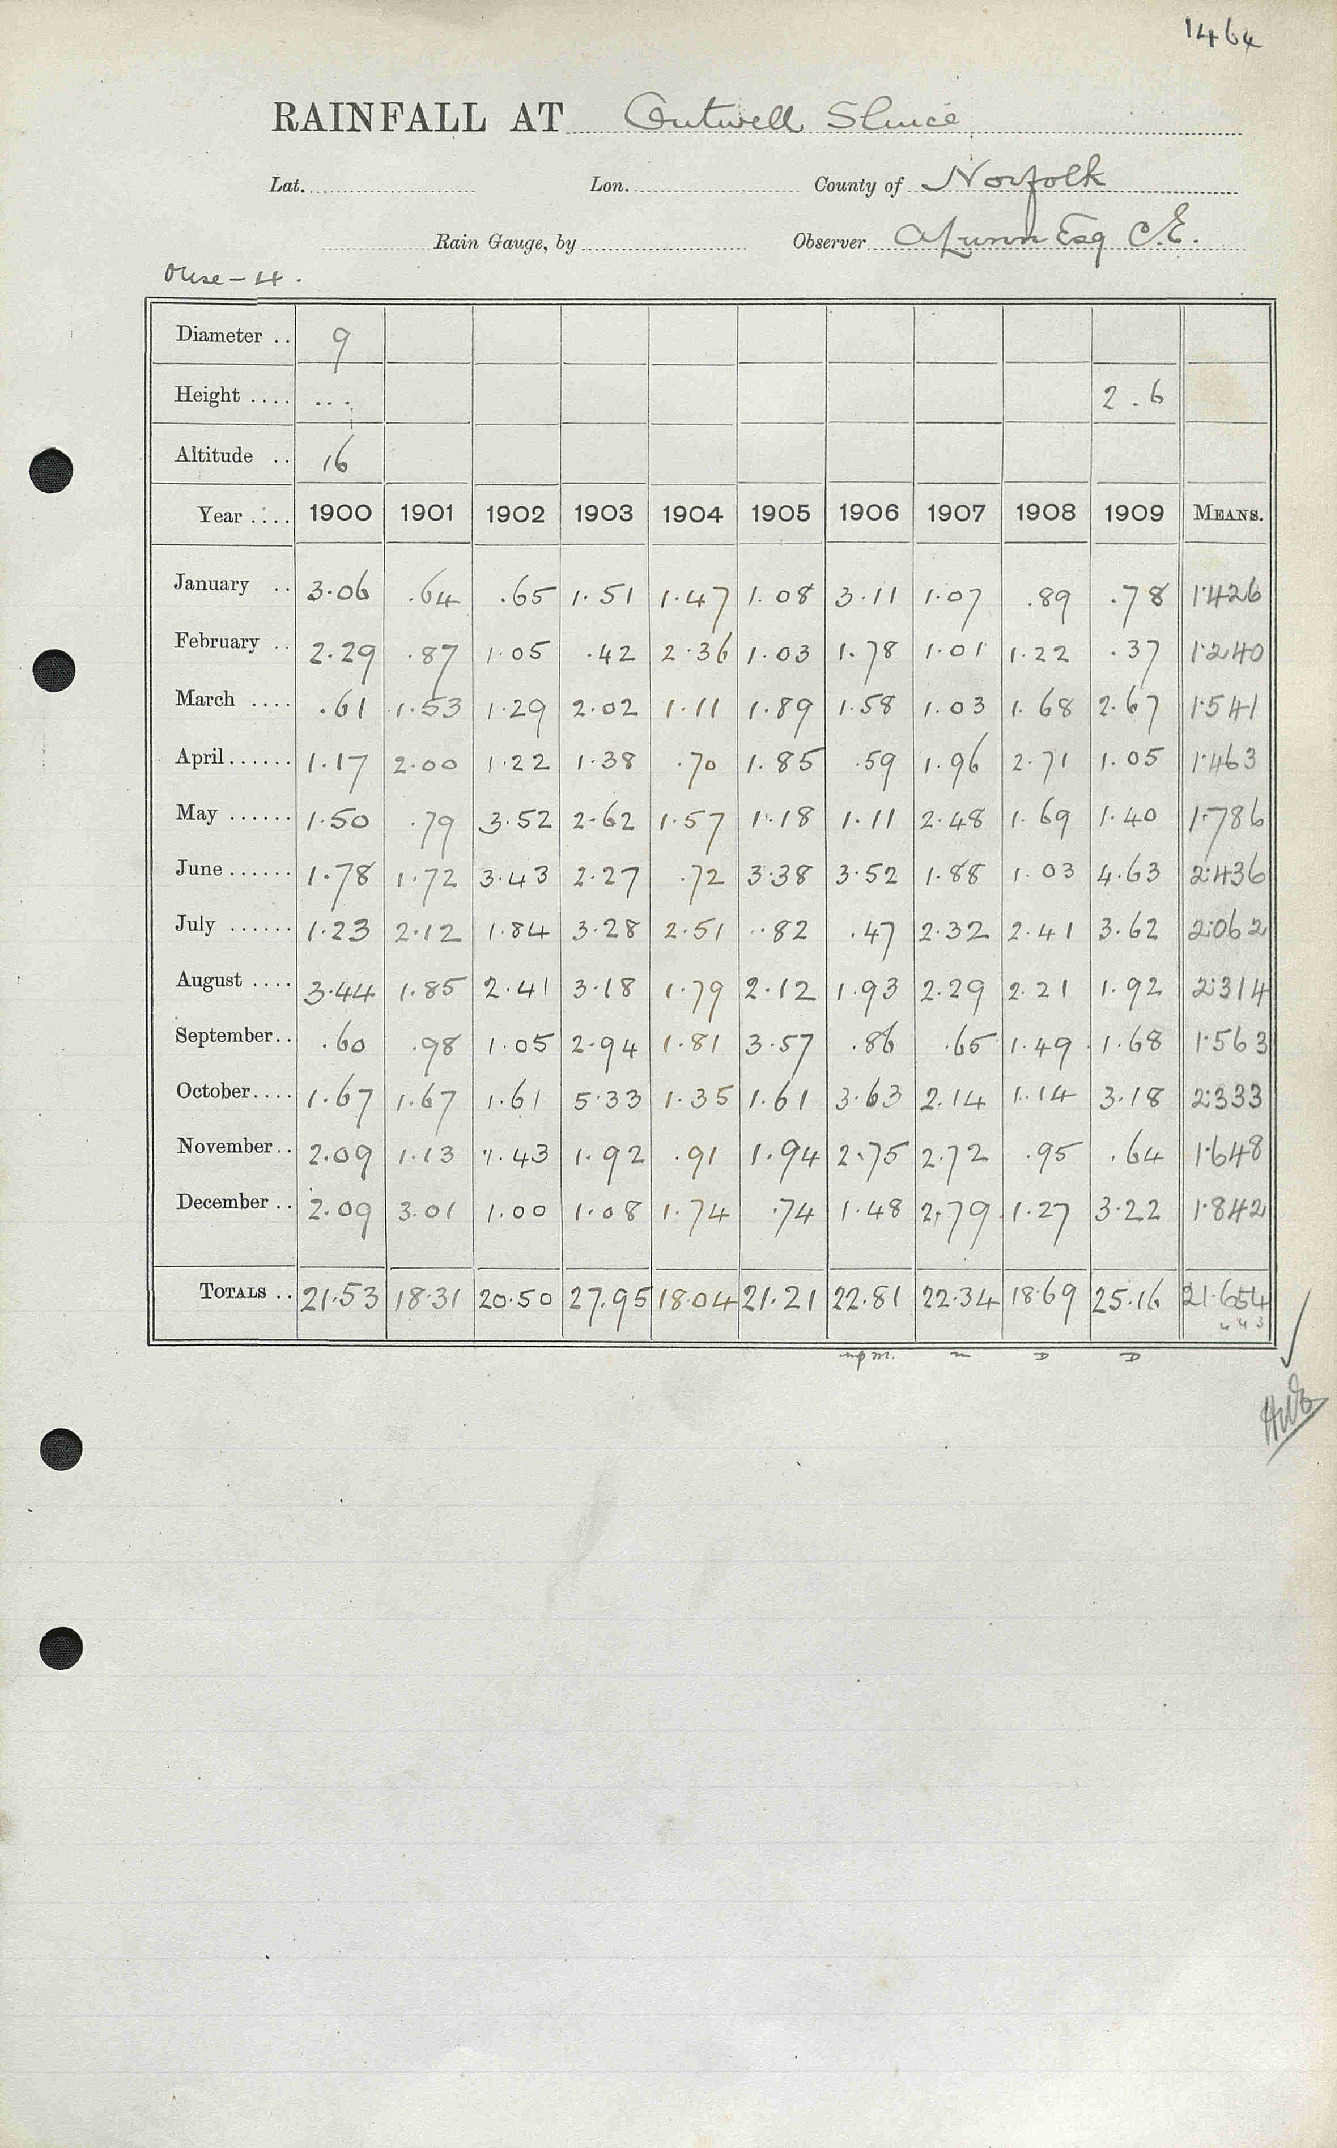 1464
RAINFALL AT Outwell Sluice
Lat. Lon. County of Norfolk
Rain Gauge, by Observer A Lunn Esq C.E.
Ouse - 4.
Diameter .. 9
Height .... ... 2.6
Altitude .. 16
Year .... 1900 1901 1902 1903 1904 1905 1906 1907 1908 1909 MEANS.
January .. 3.06 .64 .65 1.51 1.47 1.08 3.11 1.07 .89 .78 1.426
February .. 2.29 .87 1.05 .42 2.36 1.03 1.78 1.01 1.22 .37 1.240
March .... .61 1.53 1.29 2.02 1.11 1.89 1.58 1.03 1.68 2.67 1.541
April...... 1.17 2.00 1.22 1.38 .70 1.85 .59 1.96 2.71 1.05 1.463
May ...... 1.50 .79 3.52 2.62 1.57 1.18 1.11 2.48 1.69 1.40 1.786
June...... 1.78 1.72 3.43 2.27 .72 3.38 3.52 1.88 1.03 4.63 2.436
July ...... 1.23 2.12 1.84 3.28 2.51 .82 .47 2.32 2.41 3.62 2.062
August .... 3.44 1.85 2.41 3.18 1.79 2.12 1.93 2.29 2.21 1.92 2.314
September.. .60 .98 1.05 2.94 1.81 3.57 .86 .65 1.49 1.68 1.563
October.... 1.67 1.67 1.61 5.33 1.35 1.61 3.63 2.14 1.14 3.18 2.333
November.. 2.09 1.13 1.43 1.92 .91 1.94 2.75 2.72 .95 .64 1.648
December .. 2.09 3.01 1.00 1.08 1.74 .74 1.48 2.79 1.27 3.22 1.842
TOTALS .. 21.53 18.31 20.50 27.95 18.04 21.21 22.81 22.34 18.69 25.16 21.654
D D